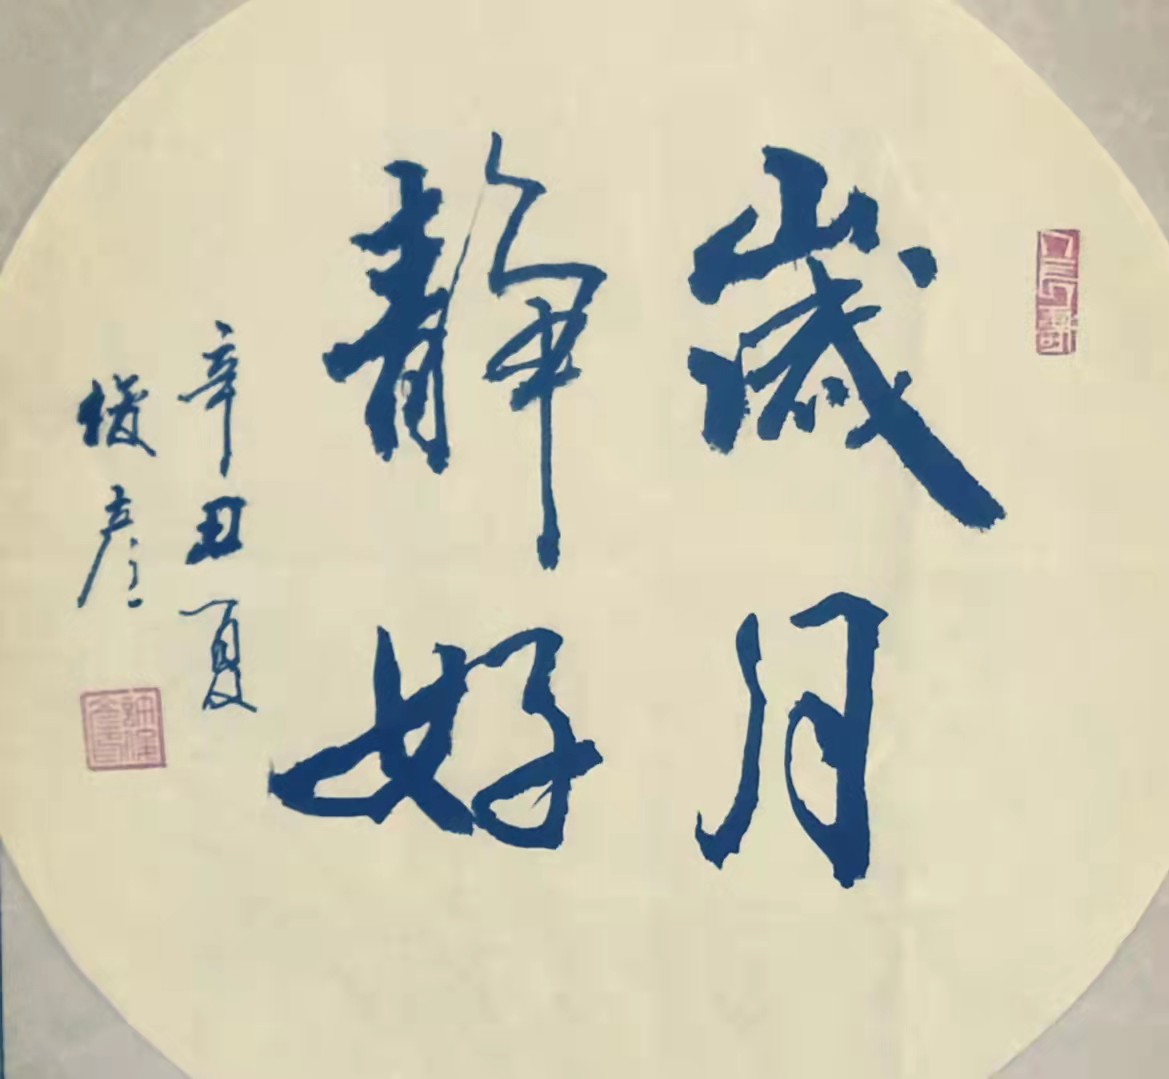 歲月
靜好
辛丑夏
俊彦